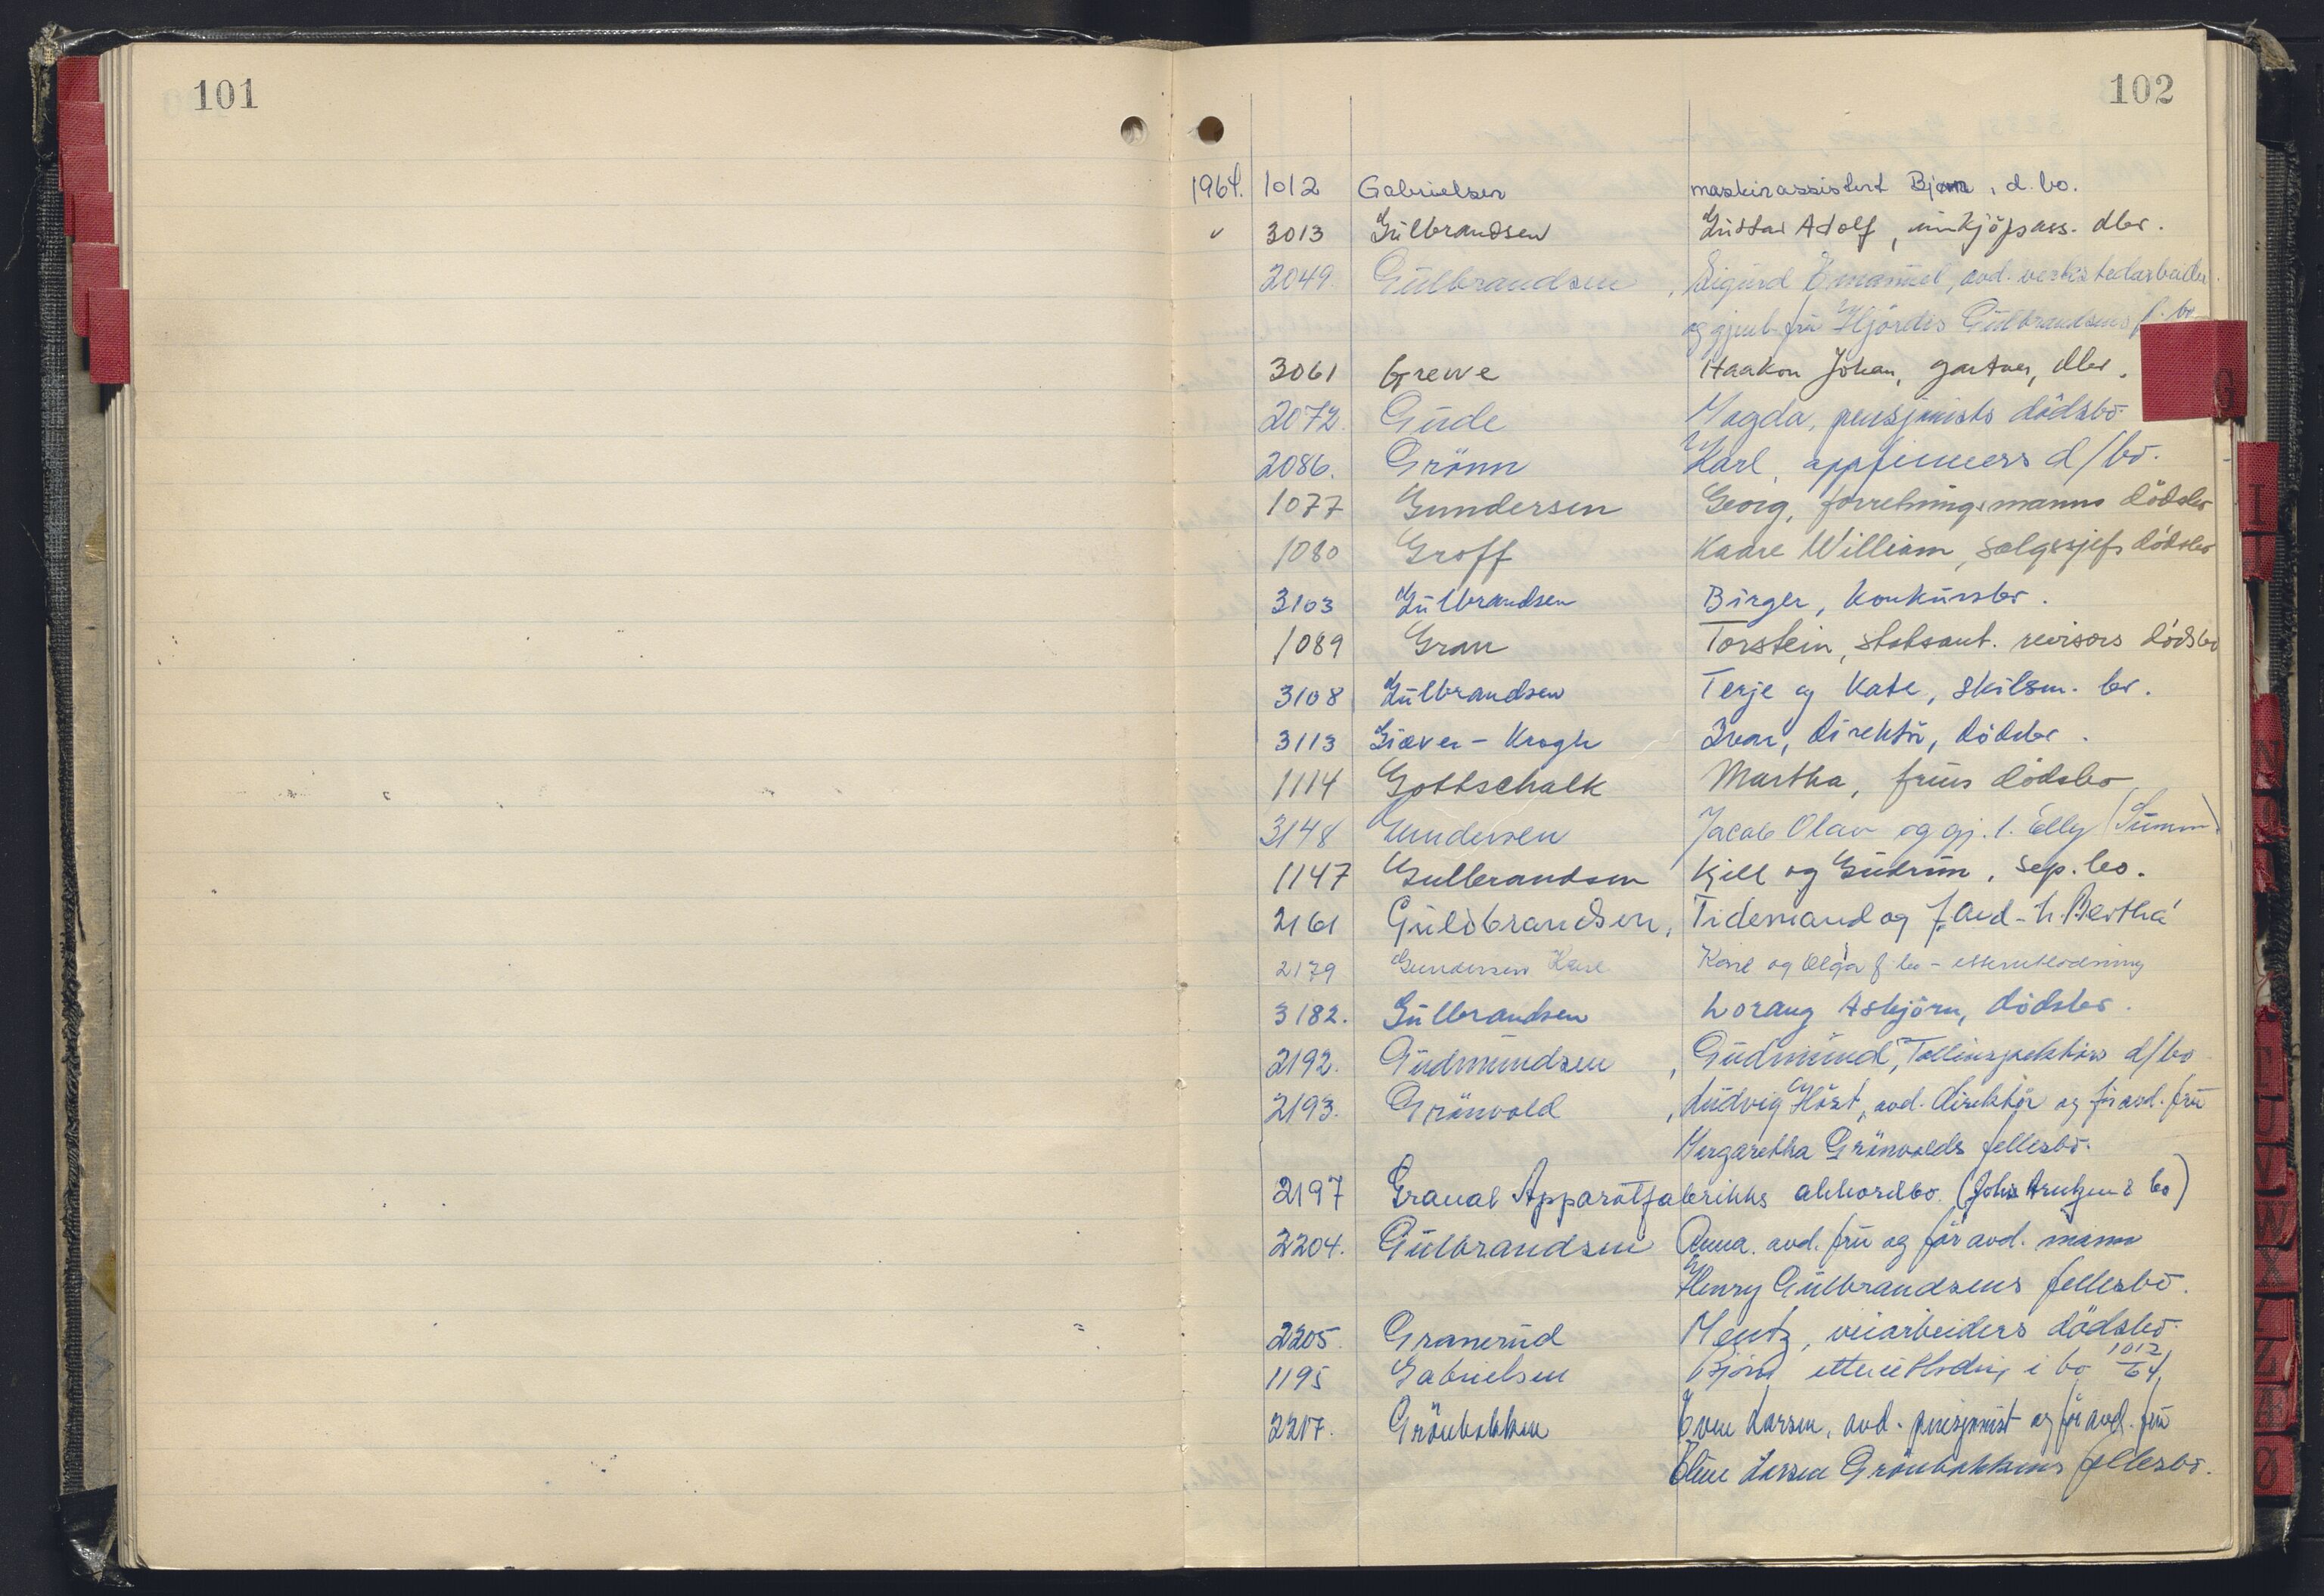 101
102
1964. 1012 Gabrielsen maskinassistent Bjørn, d. bo.
" 3013 Gulbrandsen Gustav Adolf, innkjöpsass. dbo.
2049. Gulbrandsen, Sigurd Emanuel, avd. verkstedarbeider
og gjenl. fru Hjördis Gulbrandsens f. bo
3061 Greve Haakon Johan, gartner, dbo.
2072. Gude Magda, pensjonists dödsbo.
G
2086. Grönn Karl, oppfinners d/bo.
1077 Gundersen Georg, forretningsmanns dödsbo
I
1080 Groff Kaare William, salgssjefs dödsbo
3103 Gulbrandsen Birger, konkursbo.
1089 Gran Torstein, statsaut. revisors dödsbo
3108 Gulbrandsen Terje og Kate, skilsm. bo.
3113 Giæver-Krogh Ivar, direktör, dödsbo.
1114 Gottschalk Martha, frues dödsbo
3148 Gundersen Jacob Olav og gj. l. Elly
1147 Gulbrandsen Kjell og Gudrun, sep. bo.
2161 Guldbrandsen, Tidemand og f. avd. h. Bertha
2179 Gundersen Karl Karl og Olga f bo - etterutlodning
3182. Gulbrandsen Lorang Asbjörn, dödsbo.
2192. Gudmundsen, Gudmund, Tollinspektörs d/bo
2193. Grönvold, Ludvig Höst, avd. direktör og för avd. fru
Margaretha Grönvolds fellesbo.
2197 Graual Apparatfabrikks akkordbo. (John Arntzens bo)
2204. Gulbrandsen Anna. avd. fru og för avd. mann
Henry Gulbrandsens fellesbo.
2205. Granerud Mentz, veiarbeiders dödsbo.
1195 Gabrielsen Bjørn etterutlodning i bo 1012/64
2217. Grönbakken Even Larsen, avd. pensjonist og för avd. fru
Eline Larsen Grönbakkens fellesbo.
W
X
Z
Ø